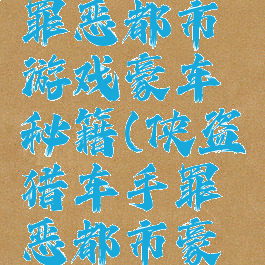 罪恶都市
游戏豪车
秘籍(侠盗
猎车手罪
恶都市豪